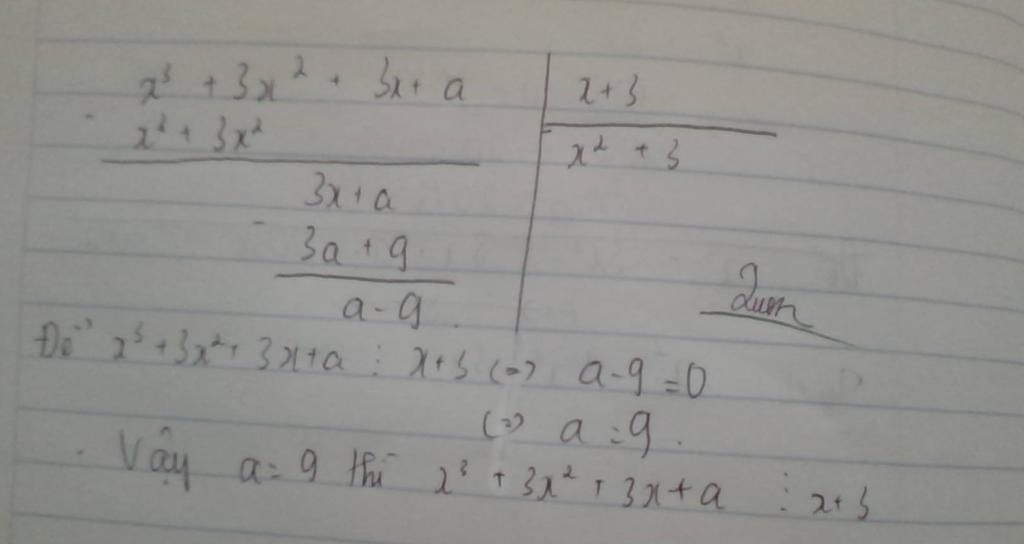 x³ + 3x² + 3x + a | x + 3
- x³ + 3x² | x² + 3
3x + a
- 3a + 9
a - 9
Để x³ + 3x² + 3x + a ⋮ x + 3 (=) a - 9 = 0
(=) a = 9.
Vậy a = 9 thì x³ + 3x² + 3x + a ⋮ x + 3